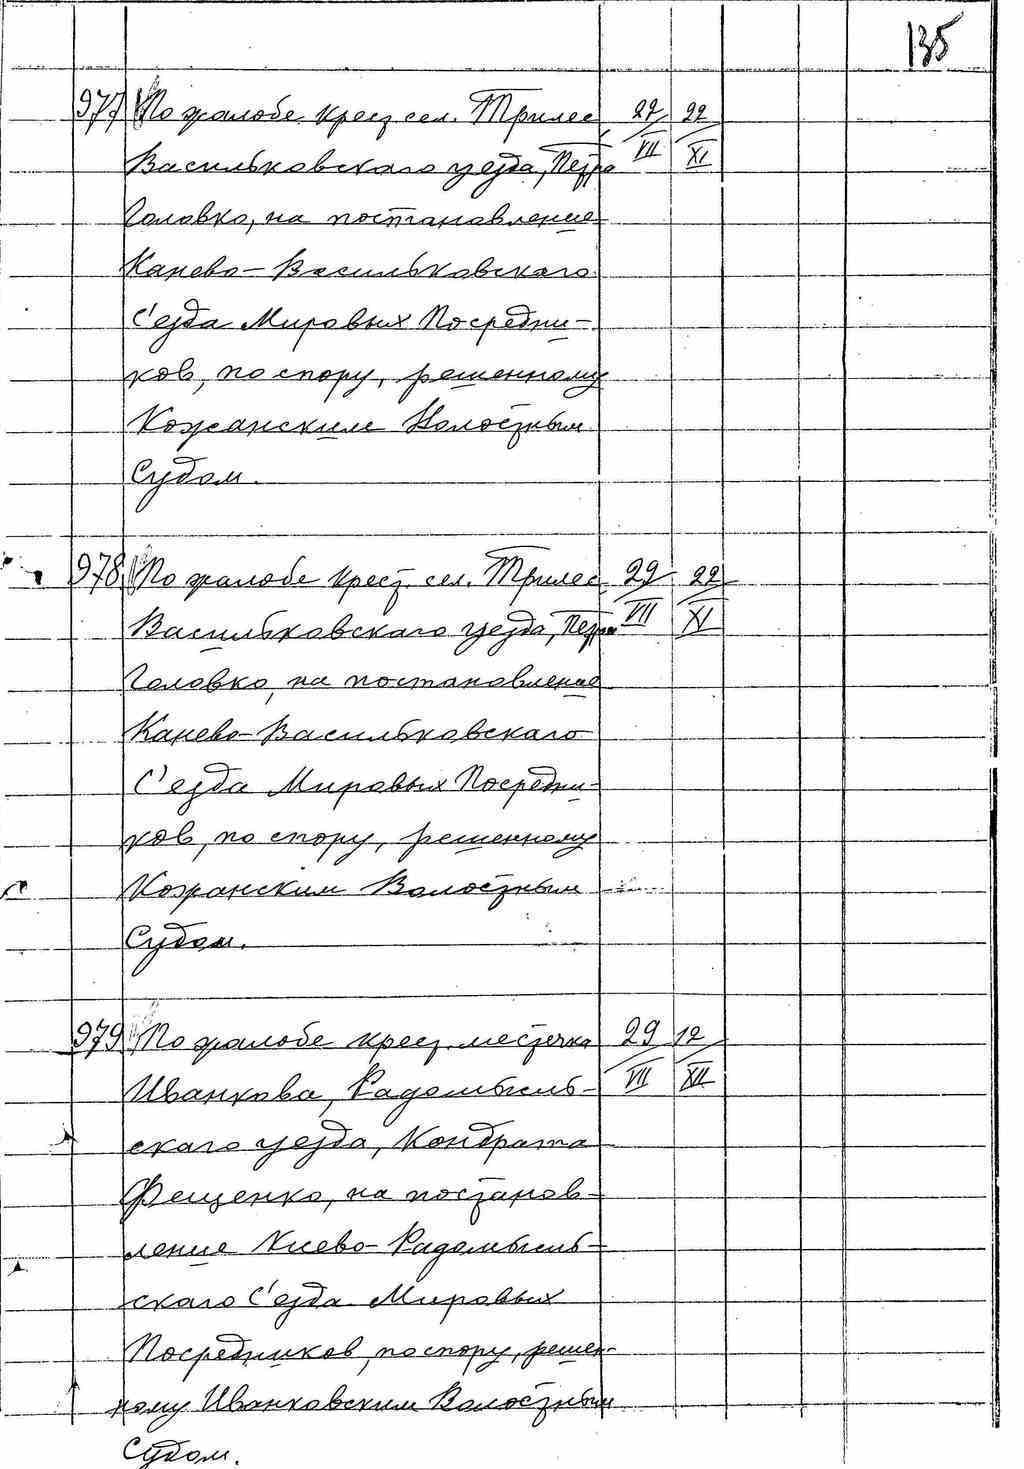 135
977 По жалобе крест. сел. Трилес, 27 22
Васильковского уезда, Петра VII XI
Головко, на постановление
Канево-Васильковскаго
С'езда Мировых Посредни-
ков, по спору, решенному
Кожанским Волостным
Судом.
978 По жалобе крест. сел. Трилес, 29 22
Васильковскаго уезда, Петра VII XI
Головко, на постановление
Канево-Васильковскаго
С'езда Мировых Посредни-
ков, по спору, решенному
Кожанским Волостным
Судом.
979 По жалобе крест. местечка 29 12
Иванкова, Радомысль- VII XII
скаго уезда, Кондрата
Фещенко, на постанов-
ление Киево-Радомысль-
скаго С'езда Мировых
Посредников, по спору, решен-
ному Иванковским Волостным
Судом.